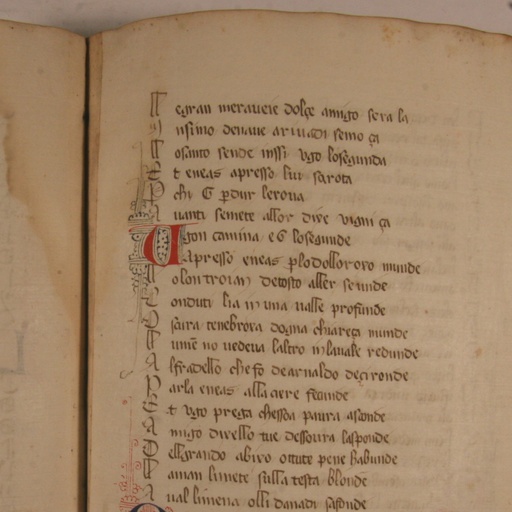 T egran meraveie dolçe amigo sera la
N nsimo denave arivadi semo ça
T osanto sende inssi vgo losegunda
E t eneas apresso lui sarota
P chi G pdur lerova
A vanti semete allor dire vigni ça
U gon camina e G losegunde
A apresso eneas plodollororo munde
olon troian detosto aller seunde
C onduti lia in una valle profunde
O scura tenebrora dogna chiareça munde
uno no vedeua laltro in lauale redunde
A lfradello che fo de arnaldo deçironde
P arla eneas alla ciere fecunde
E t vgo prega chessda paura asconde
A migo dirello tue dessoura lasponde
ellgrando abiro ottute pene habunde
T aman limete sulla testa blonde
A ual limena olli danadi sasonde